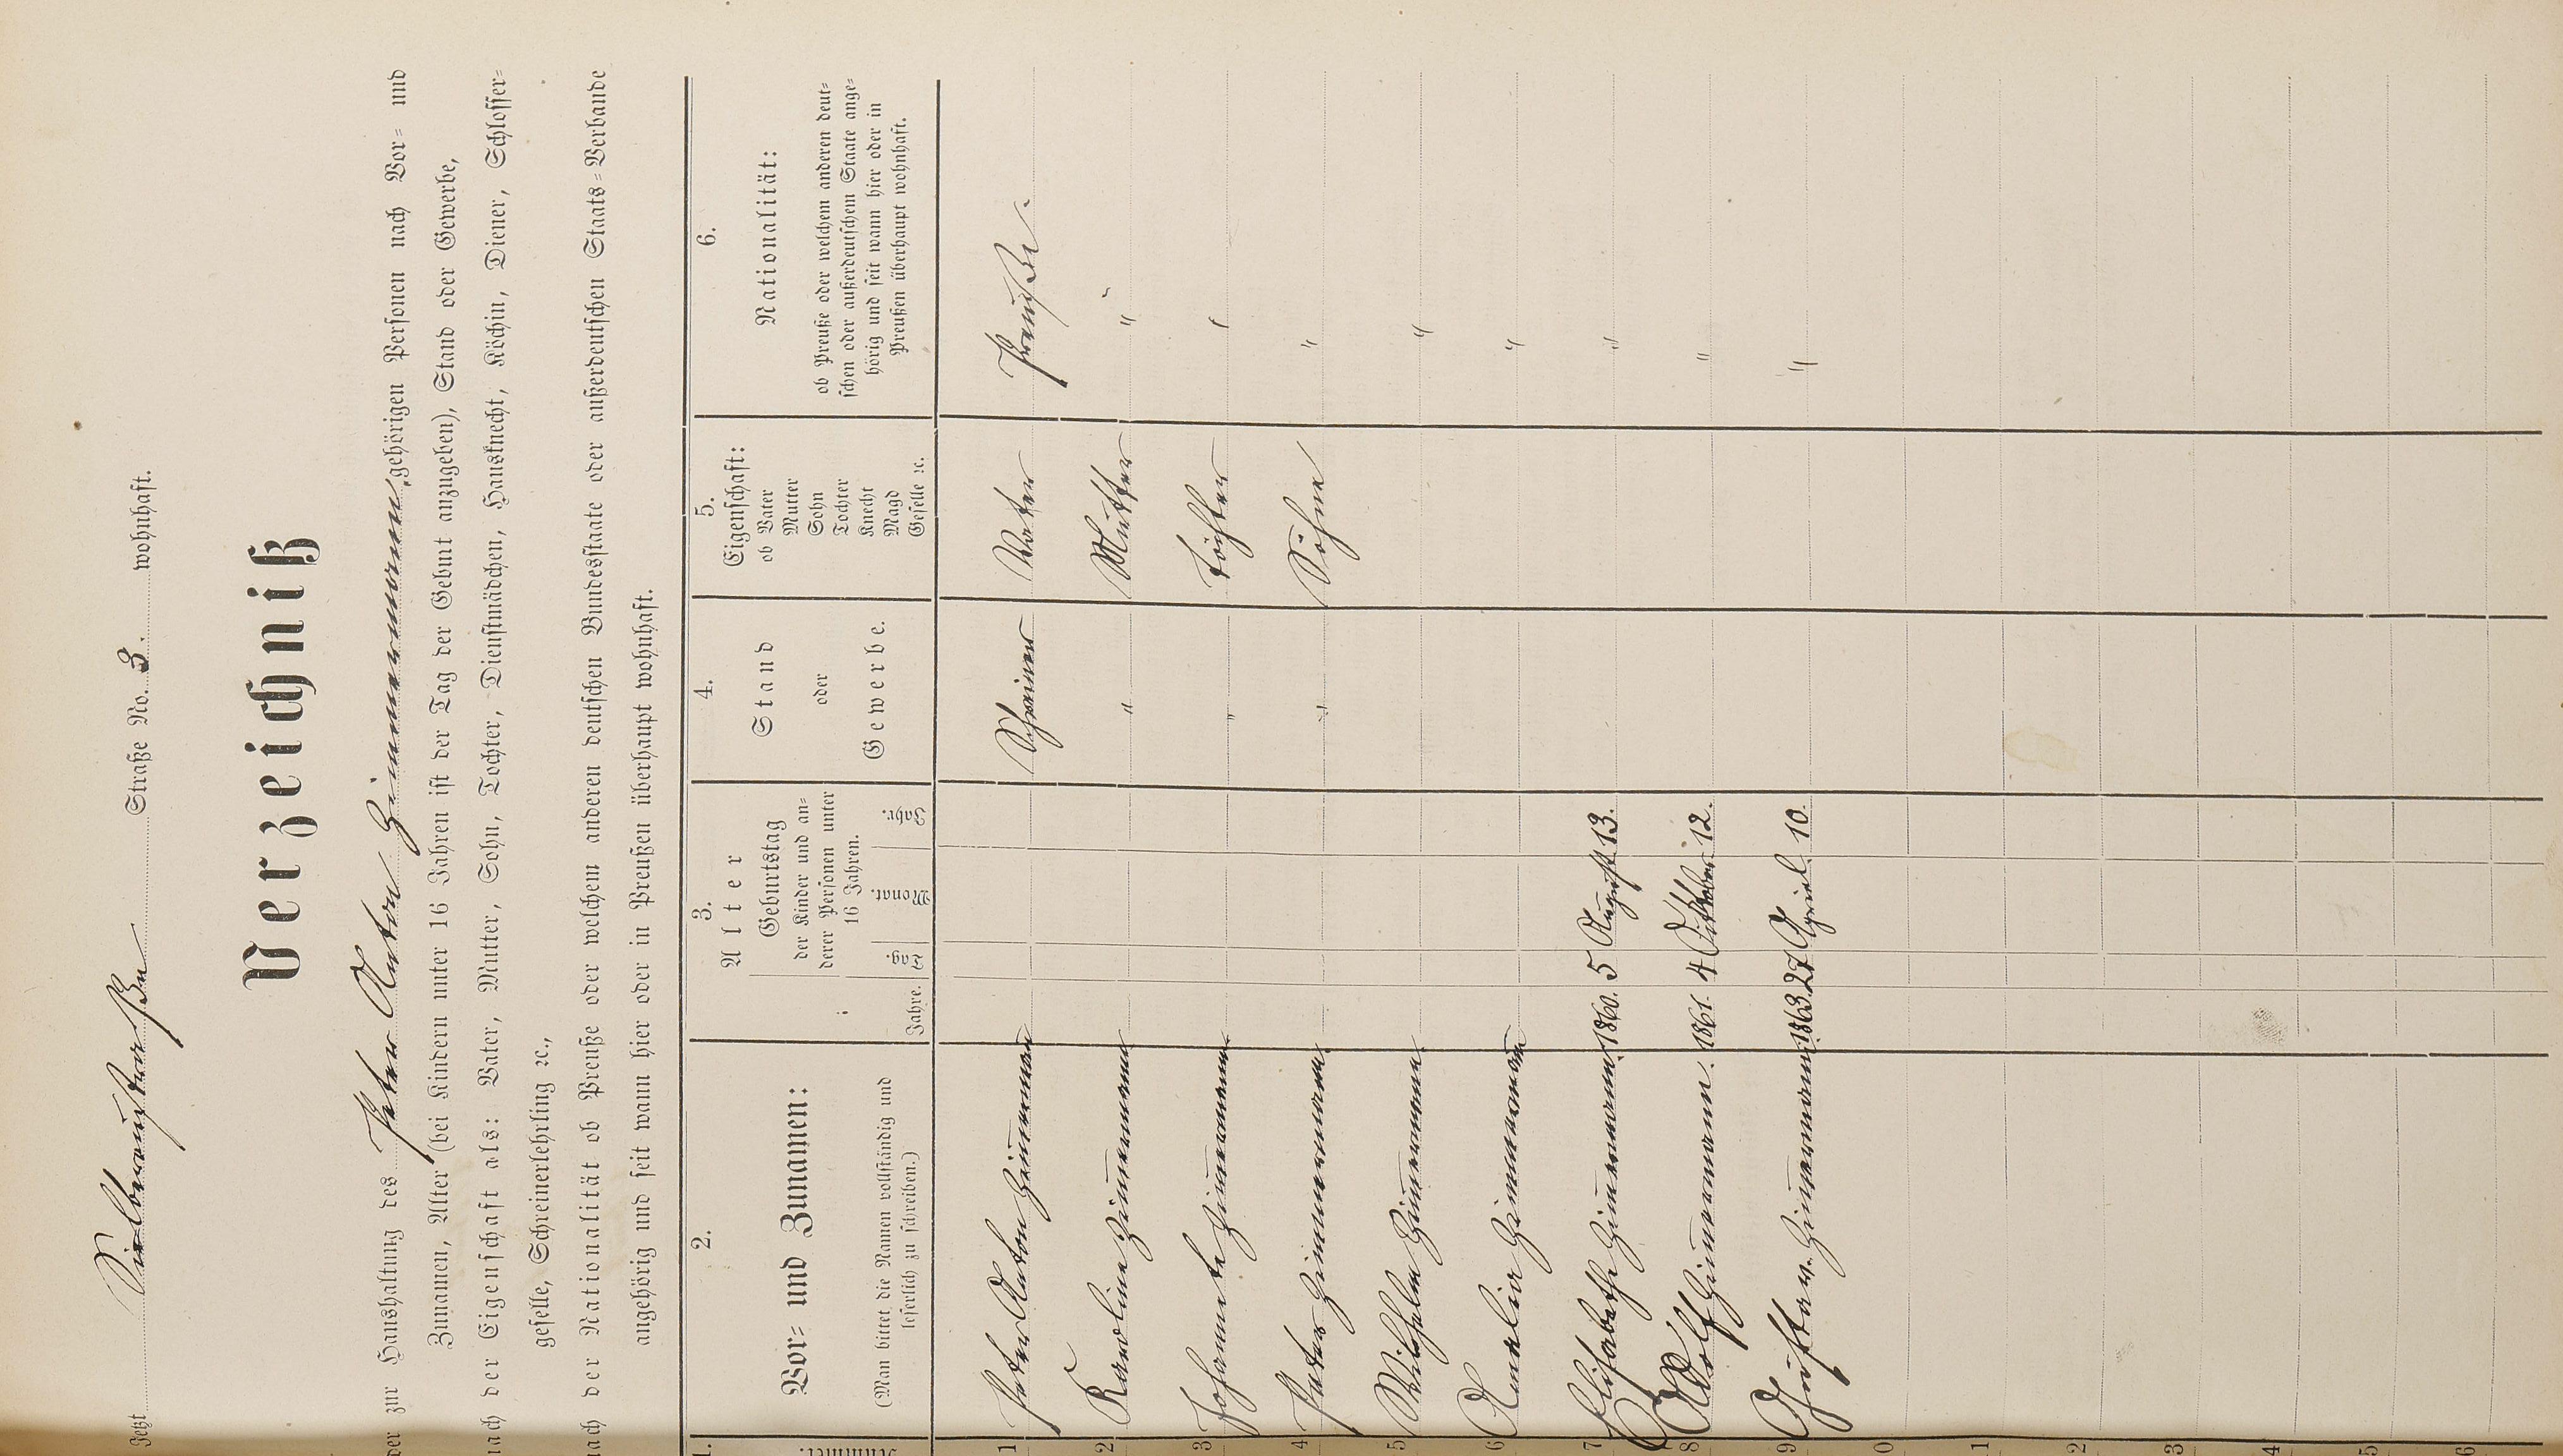 Jetzt Silbernstraße Straße No. 3. wohnhaft.
Verzeichniß
der zur Haushaltung des Peter Anton Zimmermann gehörigen Personen nach Vor- und
Zunamen, Alter (bei Kindern unter 16 Jahren ist der Tag der Geburt anzugeben), Stand oder Gewerbe,
nach der Eigenschaft als: Vater, Mutter, Sohn, Tochter, Dienstmädchen, Hausknecht, Köchin, Diener, Schlosser-
geselle, Schreinerlehrling ꝛc.,
nach der Nationalität ob Preuße oder welchem anderen deutschen Bundesstaate oder außerdeutschen Staats-Verbande
angehörig und seit wann hier oder in Preußen überhaupt wohnhaft.
1. 2. 3. 4. 5. 6.
Nummer.
Vor- und Zunamen:
(Man bittet die Namen vollständig und
leserlich zu schreiben.)
Alter
Jahre.
Geburtstag
der Kinder und an-
derer Personen unter
16 Jahren.
Tag. Monat. Jahr.
Stand
oder
Gewerbe.
Eigenschaft:
ob Vater
Mutter
Sohn
Tochter
Knecht
Magd
Geselle ꝛc.
Nationalität:
ob Preuße oder welchem anderen deut-
schen oder außerdeutschem Staate ange-
hörig und seit wann hier oder in
Preußen überhaupt wohnhaft.
1 Peter Anton Zim̅erman Schreiner Vater Preuße.
2 Karoline Zim̅ermann " Mutter "
3 Johannete Zim̅ermann " Töchter "
4 Peter Zimmermann " Söhne "
5 Wilhelm Zim̅ermann "
6 Amalia Zimmermann "
7 Elisabethe Zim̅ermann. 1860. 5 August 13. "
8 Adolf Zim̅ermann. 1861. 4 Oktober 12. "
9 Gustav. Zim̅ermann. 1863. 27 April 10. "
0
1
2
3
4
5
6